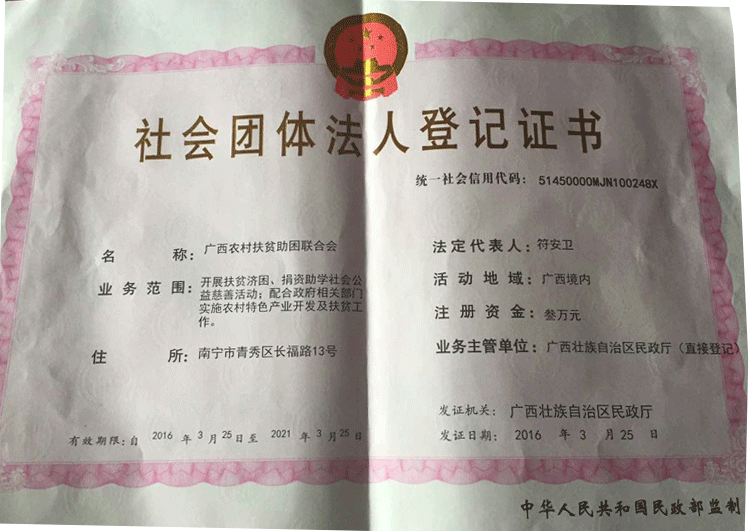 社会团体法人登记证书
统一社会信用代码：51450000MJN100248X
名称：广西农村扶贫助困联合会
业务范围：开展扶贫济困、捐资助学社会公
益慈善活动；配合政府相关部门
实施农村特色产业开发及扶贫工
作。
住所：南宁市青秀区长福路13号
有效期限：自 2016 年 3 月 25 日至 2021 年 3 月 25 日
法定代表人：符安卫
活动地域：广西境内
注册资金：叁万元
业务主管单位：广西壮族自治区民政厅（直接登记）
发证机关：广西壮族自治区民政厅
发证日期：2016 年 3 月 25 日
中华人民共和国民政部监制